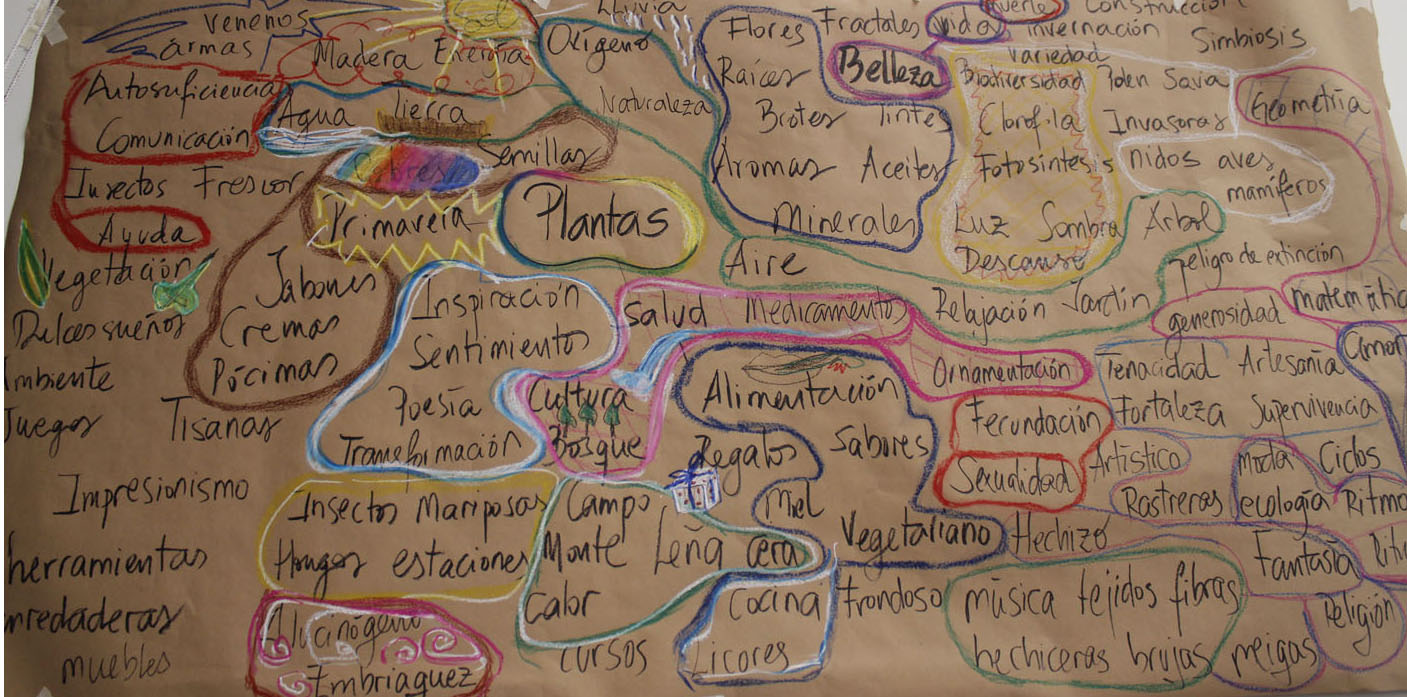 venenos
armas
Sol
Lluvia
Madera Energía
Oxígeno
Naturaleza
Flores
Raíces
Brotes Tintes
Aromas Aceites
Minerales
Fractales vida
Belleza
muerte Construcción
invernación Simbiosis
Variedad
Biodiversidad
Clorofila
Fotosíntesis
Luz Sombra
Descanso
Savia
Invasoras
Geometría
nidos aves
mamíferos
Autosuficiencia
Comunicación
Insectos Frescor
Ayuda
Agua Tierra
Colores
Semillas
Primavera
Plantas
Aire
Árbol
peligro de extinción
Vegetación
Dulces sueños
Ambiente
Juegos Tisanas
Jabones
Cremas
Pócimas
Inspiración
Sentimientos
Poesía
Transformación
Salud Medicamentos
Relajación Jardín
generosidad
matemática
amor
Cultura
Bosque
Alimentación
Regalos
Sabores
Miel
Vegetaliano
Ornamentación
Fecundación
Sexualidad
Tenacidad Artesanía
Fortaleza Supervivencia
Artístico
Rastreras
moda Ciclos
ecología Ritmo
Impresionismo
herramientas
enredaderas
muebles
Insectos Mariposas
Hongos estaciones
Campo
Monte Leña cera
Calor
Cursos
Alucinógeno
Embriaguez
Cocina
Licores
Hechizo
Fantasía
Frondoso
música tejidos fibras
hechiceras brujas meigas
Religión